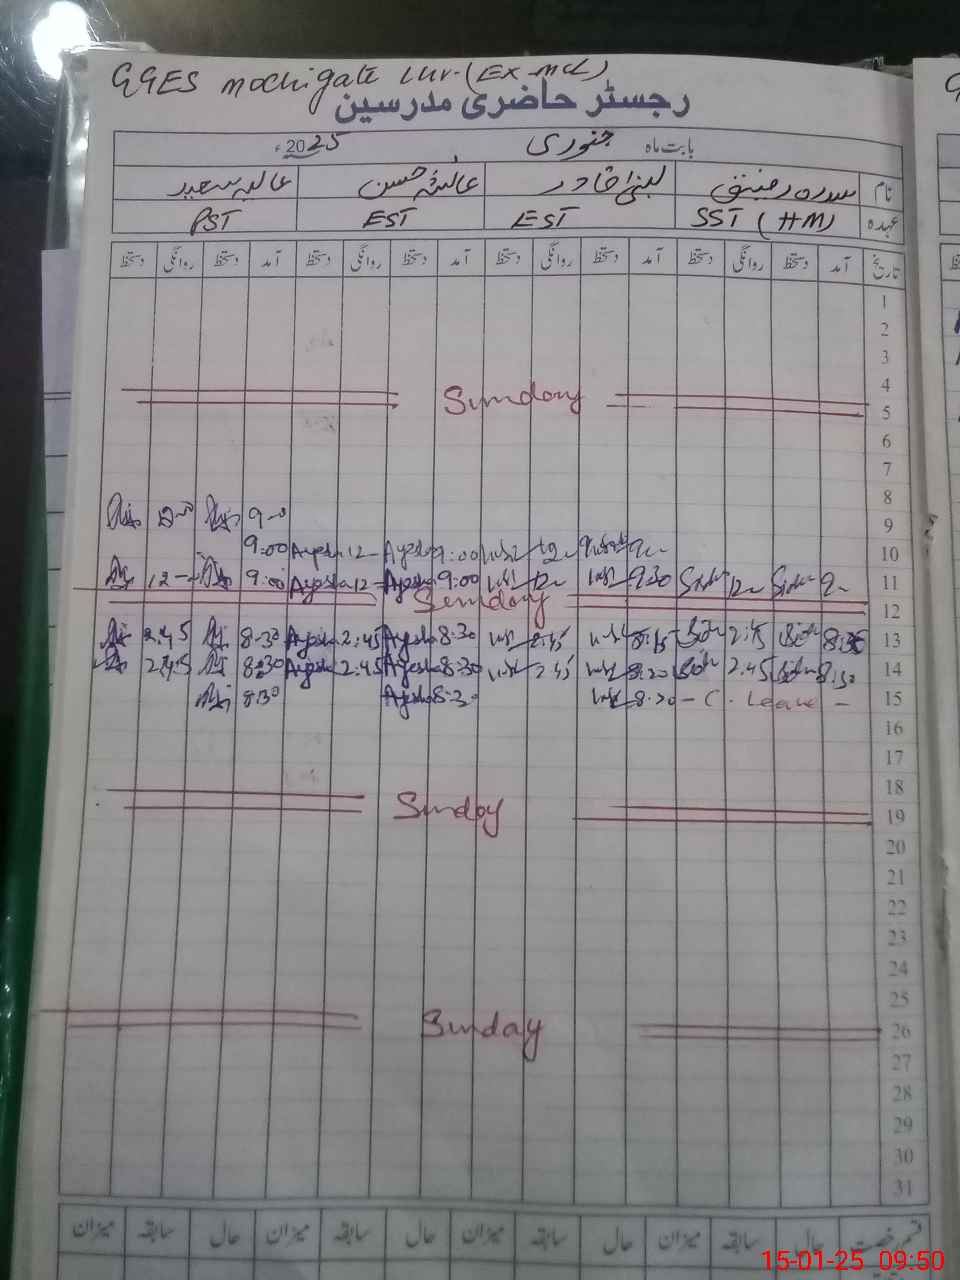 GGES mochigate Lhr. (Ex-mcl)
رجسٹر حاضری مدرسین
بابت ماہ جنوری 2025ء
نام سدرہ رفیق لبنیٰ قادر عائشہ حسن عالیہ سعید
عہدہ SST (HM) EST EST PST
تاریخ آمد دستخط روانگی دستخط آمد دستخط روانگی دستخط آمد دستخط روانگی دستخط آمد دستخط روانگی دستخط
1
2
3
4
Sunday
5
6
7
8
9 9-0 12-0
10 9:00 Ayesha 12- Ayesha 9:00
11 9- 12- 9.30 12- 9:00 Ayesha 12- Ayesha 9:00 12-
12 Sunday
13 8:30 2.45 8.15 2.45 8.30 Ayesha 2.45 Ayesha 8.30 2.45
14 8.30 2.45 8.20 2.45 8:30 Ayesha 2.45 Ayesha 8:30 2.45
15 - C. Leave - 8.20 Ayesha 8:30 8.30
16
17
18
Sunday
19
20
21
22
23
24
25
Sunday
26
27
28
29
30
31
قسم رخصت حال سابقہ میزان حال سابقہ میزان حال سابقہ میزان حال سابقہ میزان
15-01-25 09:50